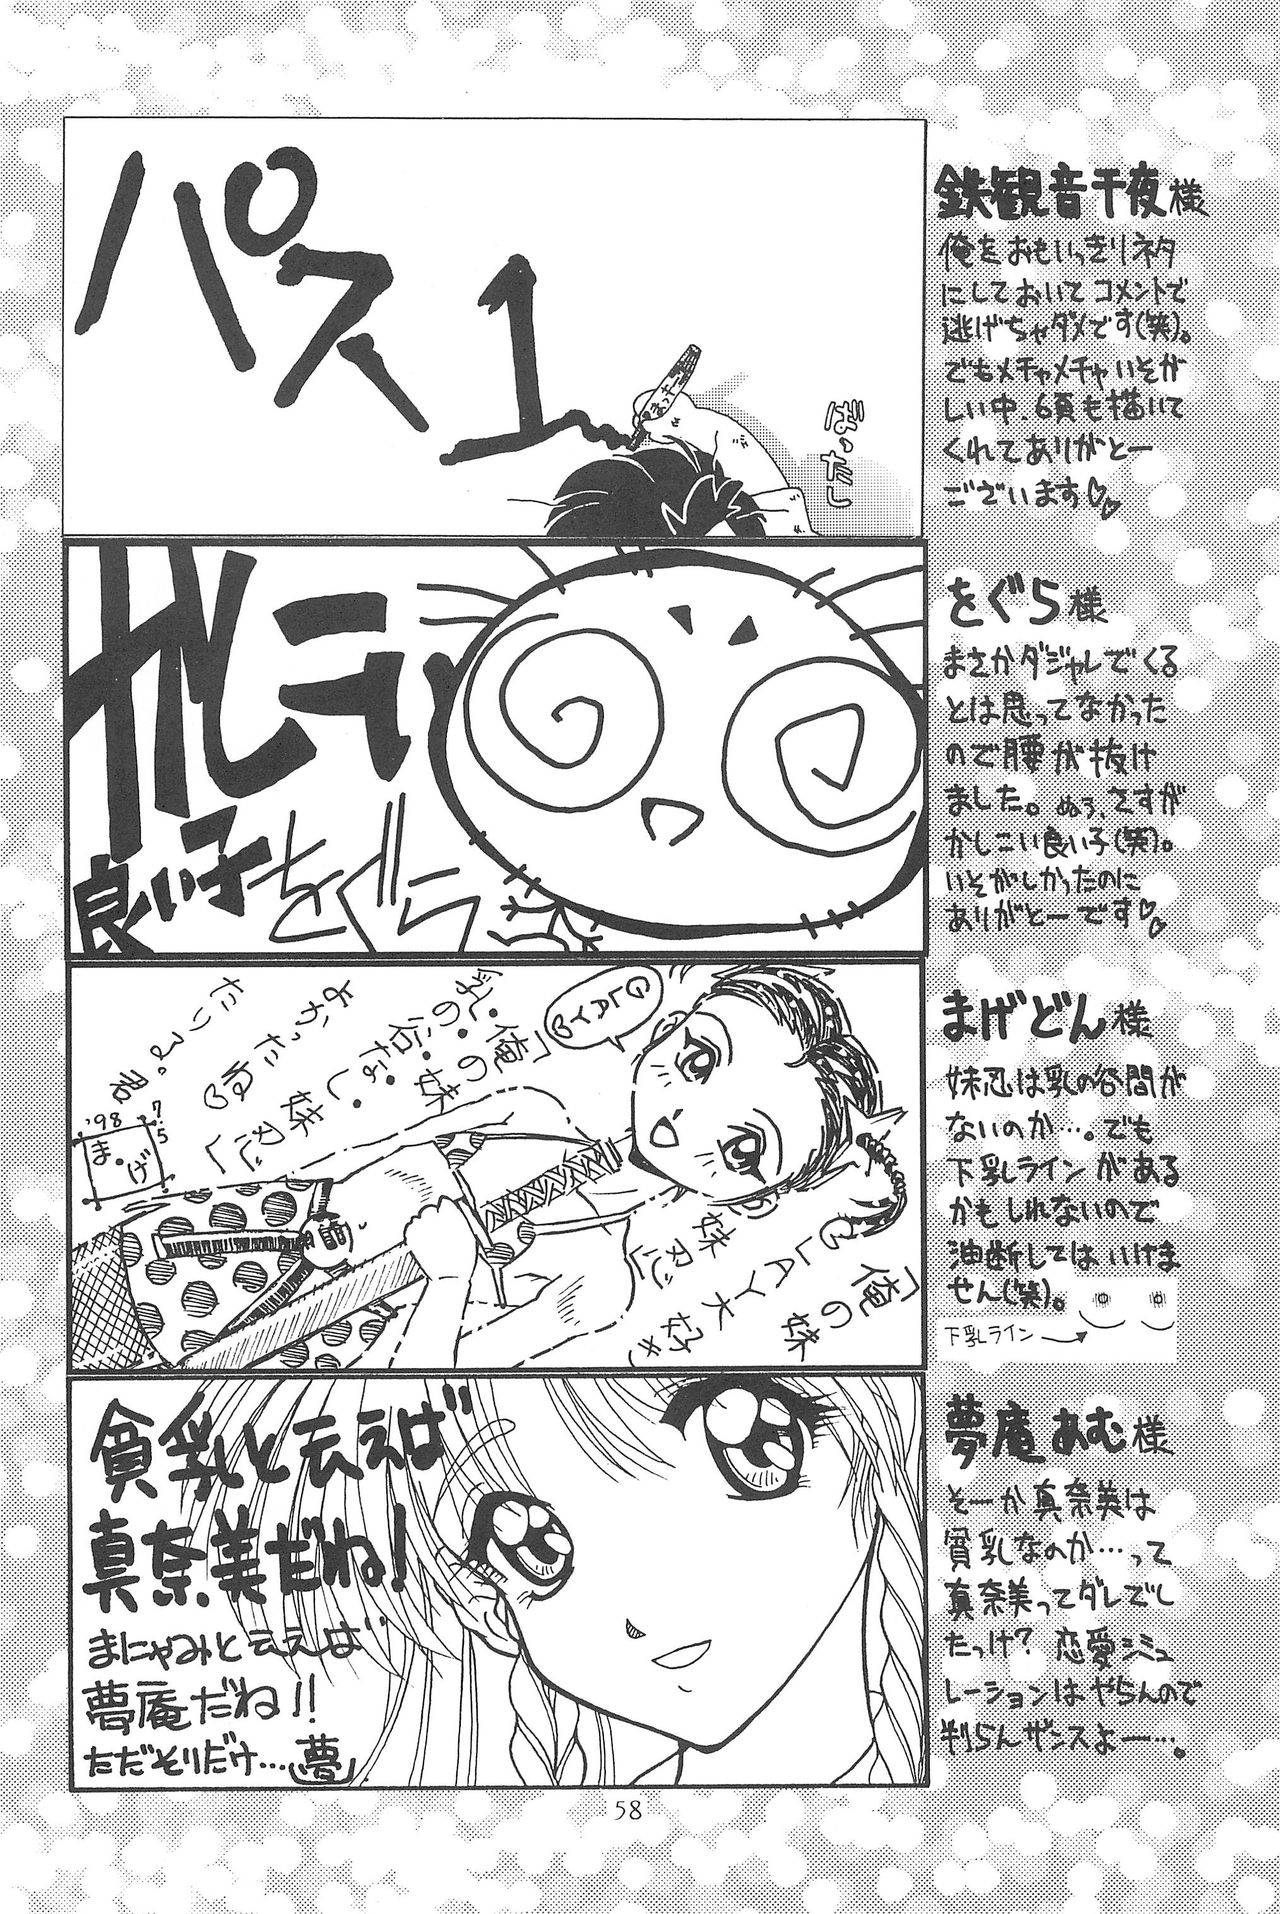 パス1
ばったし
まっきー
鉄観音千夜様
俺をおもいっきりネタ
にしておいてコメントで
逃げちゃダメです(笑)。
でもメチャメチャいそが
しい中、6頁も描いて
くれてありがとー
ございます♡♡
良い子をぐら
をぐら様
まさかダジャレでくる
とは思ってなかった
ので腰が抜け
ました。ぬう、さすが
かしこい良い子(笑)。
いそがしかったのに
ありがとーです♡♡
GLAY♡
「俺の妹
乳・俺の妹
の谷・なし
妹忍じ
よかったね♡
たりつる。君
'98
7.5
ま。げ
「俺の妹
GLAY大好き
妹忍じ
まげどん様
妹忍は乳の谷間が
ないのか…。でも
下乳ラインがある
かもしれないので
油断してはいけま
せん(笑)。
下乳ライン→
貧乳と云えば
真奈美だね!
まにゃみと云えば
夢庵だね!!
ただそりだけ…夢
夢庵あむ様
そーか真奈美は
貧乳なのか…って
真奈美ってダレでし
たっけ?恋愛シミュ
レーションはやらんので
判らんザンスよー…。
58